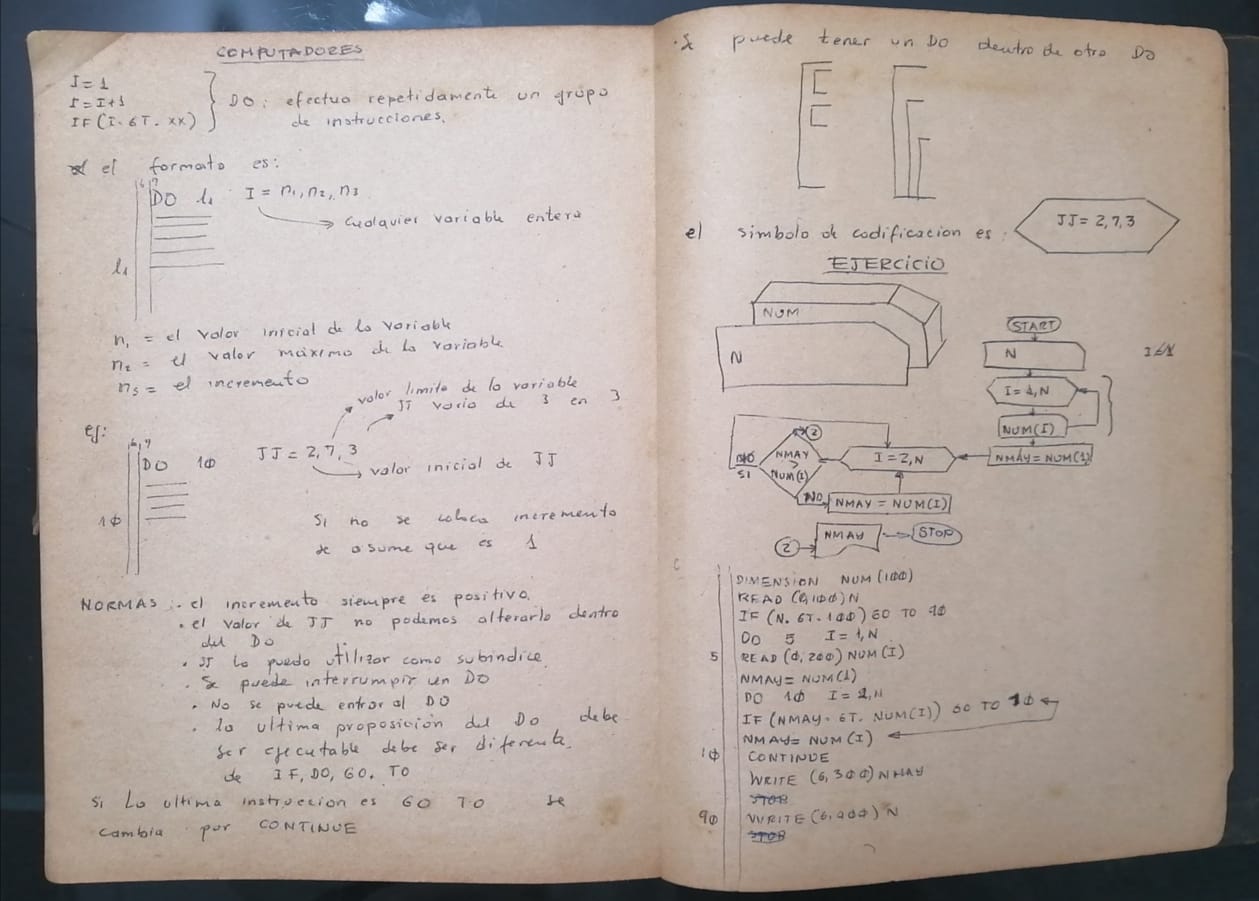 COMPUTADORES
I = 1
I = I+1
IF (I. GT. XX)
DO: efectua repetidamente un grupo
de instrucciones.
el formato es:
6 7
DO l1 I = n1, n2, n3
cualquier variable entera
l1
n1 = el valor inicial de la variable
n2 = el valor maximo de la variable
n3 = el incremento
valor limite de la variable
JJ varia de 3 en 3
ej:
6 7
DO 1Φ JJ = 2, 7, 3
valor inicial de JJ
1Φ
Si no se coloca incremento
se asume que es 1
NORMAS: . el incremento siempre es positivo.
. el valor de JJ no podemos alterarlo dentro
del DO
. JJ lo puedo utilizar como subindice
. Se puede interrumpir un DO
. No se puede entrar al DO
. la ultima proposición del DO debe
ser ejecutable debe ser diferente
de IF, DO, GO. TO
Si La ultima instruccion es GO TO se
cambia por CONTINUE
. Se puede tener un DO dentro de otro DO
el simbolo de codificacion es: JJ = 2, 7, 3
EJERCICIO
NUM
N
START
N
I = 1, N
NUM(I)
NMAY = NUM(1)
I = 2, N
NMAY > NUM(I)
NO
SI
2
NO
NMAY = NUM(I)
2
NMAY
STOP
C
DIMENSION NUM (1ΦΦ)
READ (Φ, 1ΦΦ) N
IF (N. GT. 1ΦΦ) GO TO 9Φ
DO 5 I = 1, N
5 READ (Φ, 2ΦΦ) NUM (I)
NMAY = NUM(1)
DO 1Φ I = 2, N
IF (NMAY. GT. NUM(I)) GO TO 1Φ
NMAY = NUM (I)
1Φ CONTINUE
WRITE (6, 3ΦΦ) NMAY
STOP
9Φ WRITE (6, 9ΦΦ) N
STOP